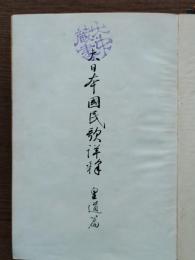 大日本國民歌詳釋 皇道篇